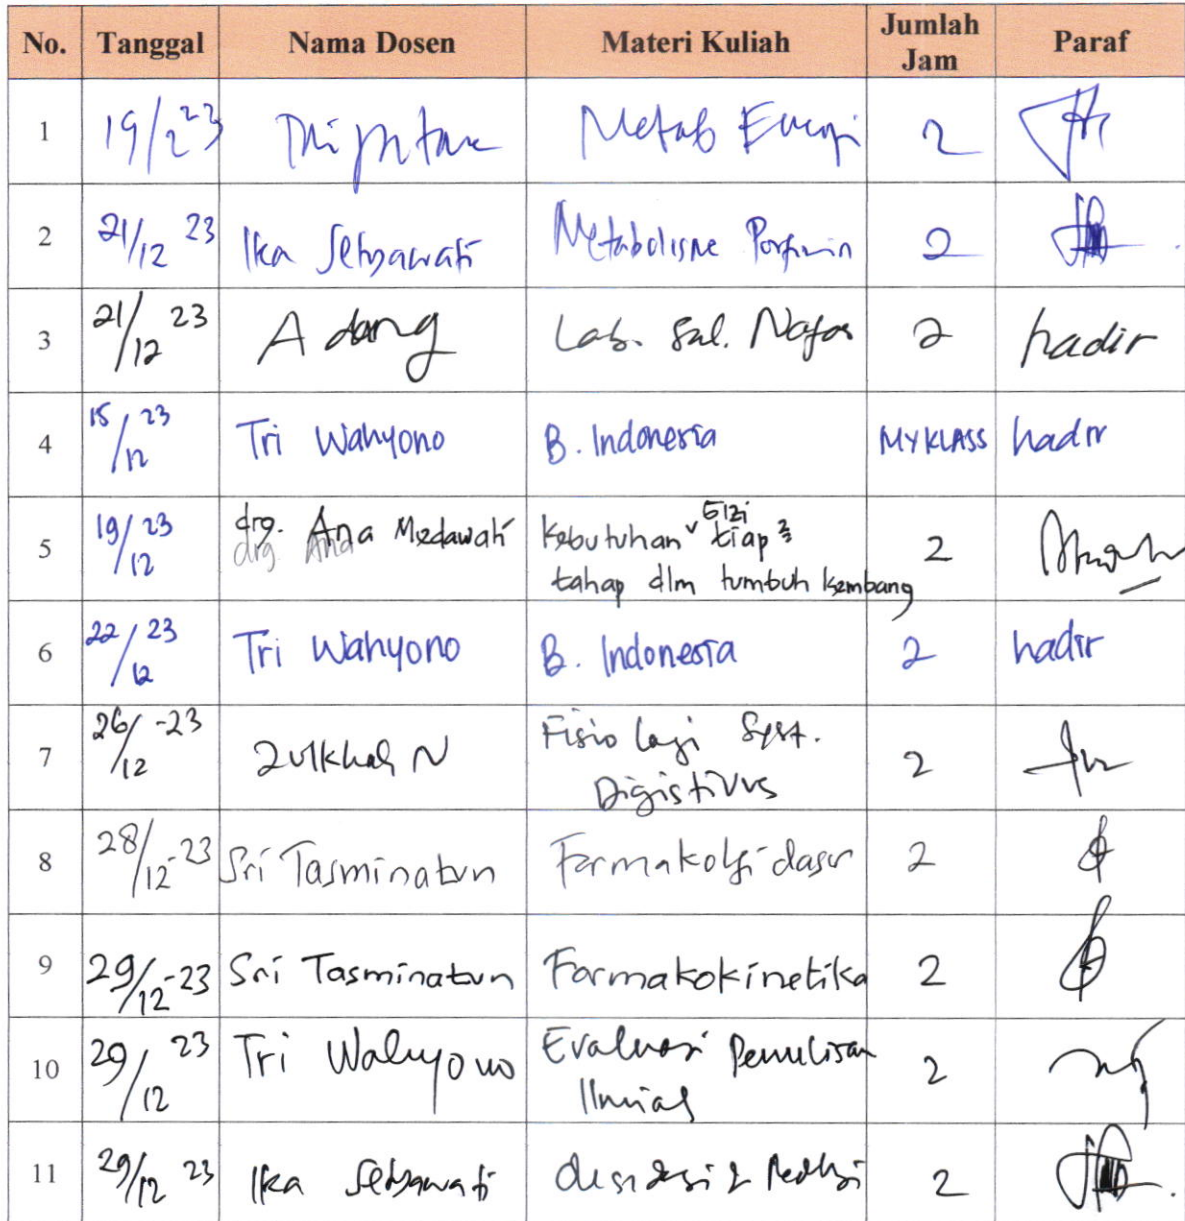 No. Tanggal Nama Dosen Materi Kuliah Jumlah Jam Paraf
1 19/12 23 Metab Energi 2
2 21/12 23 Ika Setyawati Metabolisme Porfirin 2
3 21/12 23 Adang Lab. Sal. Nafas 2 hadir
4 15/12 23 Tri Wahyono B. Indonesia MYKLASS hadir
5 19/12 23 drg. Ana Medawati Kebutuhan Gizi tiap²
drg. Ana tahap dlm tumbuh kembang 2
6 22/12 23 Tri Wahyono B. Indonesia 2 hadir
7 26/12 -23 Zulkhah N Fisiologi Syst.
Digistivus 2
8 28/12-23 Sri Tasminatun Farmakologi dasar 2
9 29/12-23 Sri Tasminatun Farmakokinetika 2
10 29/12 23 Tri Wahyono Evaluasi Penulisan
Ilmiah 2
11 29/12 23 Ika Setyawati 2